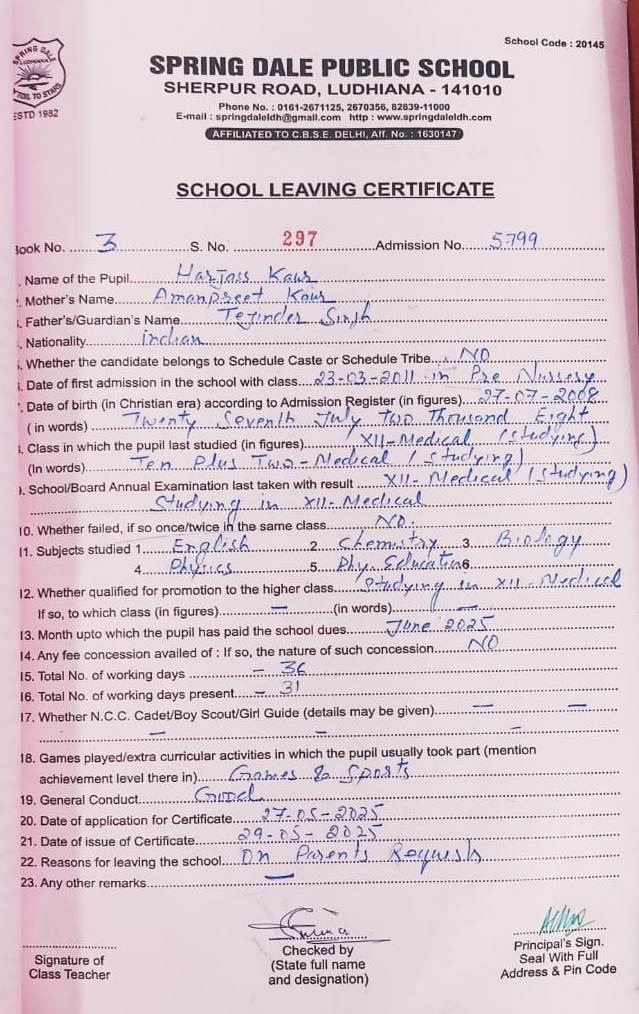 School Code : 20145
SPRING DALE
LUDHIANA
TO STARS
ESTD 1982
SPRING DALE PUBLIC SCHOOL
SHERPUR ROAD, LUDHIANA - 141010
Phone No. : 0161-2671125, 2670356, 82839-11000
E-mail : springdaleldh@gmail.com http : www.springdaleldh.com
AFFILIATED TO C.B.S.E. DELHI, Aff. No. : 1630147
SCHOOL LEAVING CERTIFICATE
Book No. 3 S. No. 297 Admission No. 5799
. Name of the Pupil Harjass Kaur
. Mother's Name Amanpreet Kaur
. Father's/Guardian's Name Tejinder Singh
. Nationality indian
. Whether the candidate belongs to Schedule Caste or Schedule Tribe NO
. Date of first admission in the school with class 23-03-2011 in Pre Nursery
. Date of birth (in Christian era) according to Admission Register (in figures) 27-07-2008
( in words) Twenty Seventh July Two Thousand Eight
. Class in which the pupil last studied (in figures) XII-Medical (studying)
(In words) Ten Plus Two-Medical (studying)
. School/Board Annual Examination last taken with result XII-Medical (studying)
Studying in XII-Medical
10. Whether failed, if so once/twice in the same class NO.
11. Subjects studied 1. English 2. Chemistry 3. Biology
4. Physics 5. Phy. Education 6.
12. Whether qualified for promotion to the higher class Studying in XII-Medical
If so, to which class (in figures) — (in words) —
13. Month upto which the pupil has paid the school dues June 2025
14. Any fee concession availed of : If so, the nature of such concession NO
15. Total No. of working days - 36
16. Total No. of working days present - 31
17. Whether N.C.C. Cadet/Boy Scout/Girl Guide (details may be given) — —
— — —
18. Games played/extra curricular activities in which the pupil usually took part (mention
achievement level there in) Games & Sports
19. General Conduct Good
20. Date of application for Certificate 27-05-2025
21. Date of issue of Certificate 29-05-2025
22. Reasons for leaving the school On Parents Requests
23. Any other remarks —
Signature of
Class Teacher
Checked by
(State full name
and designation)
Principal's Sign.
Seal With Full
Address & Pin Code